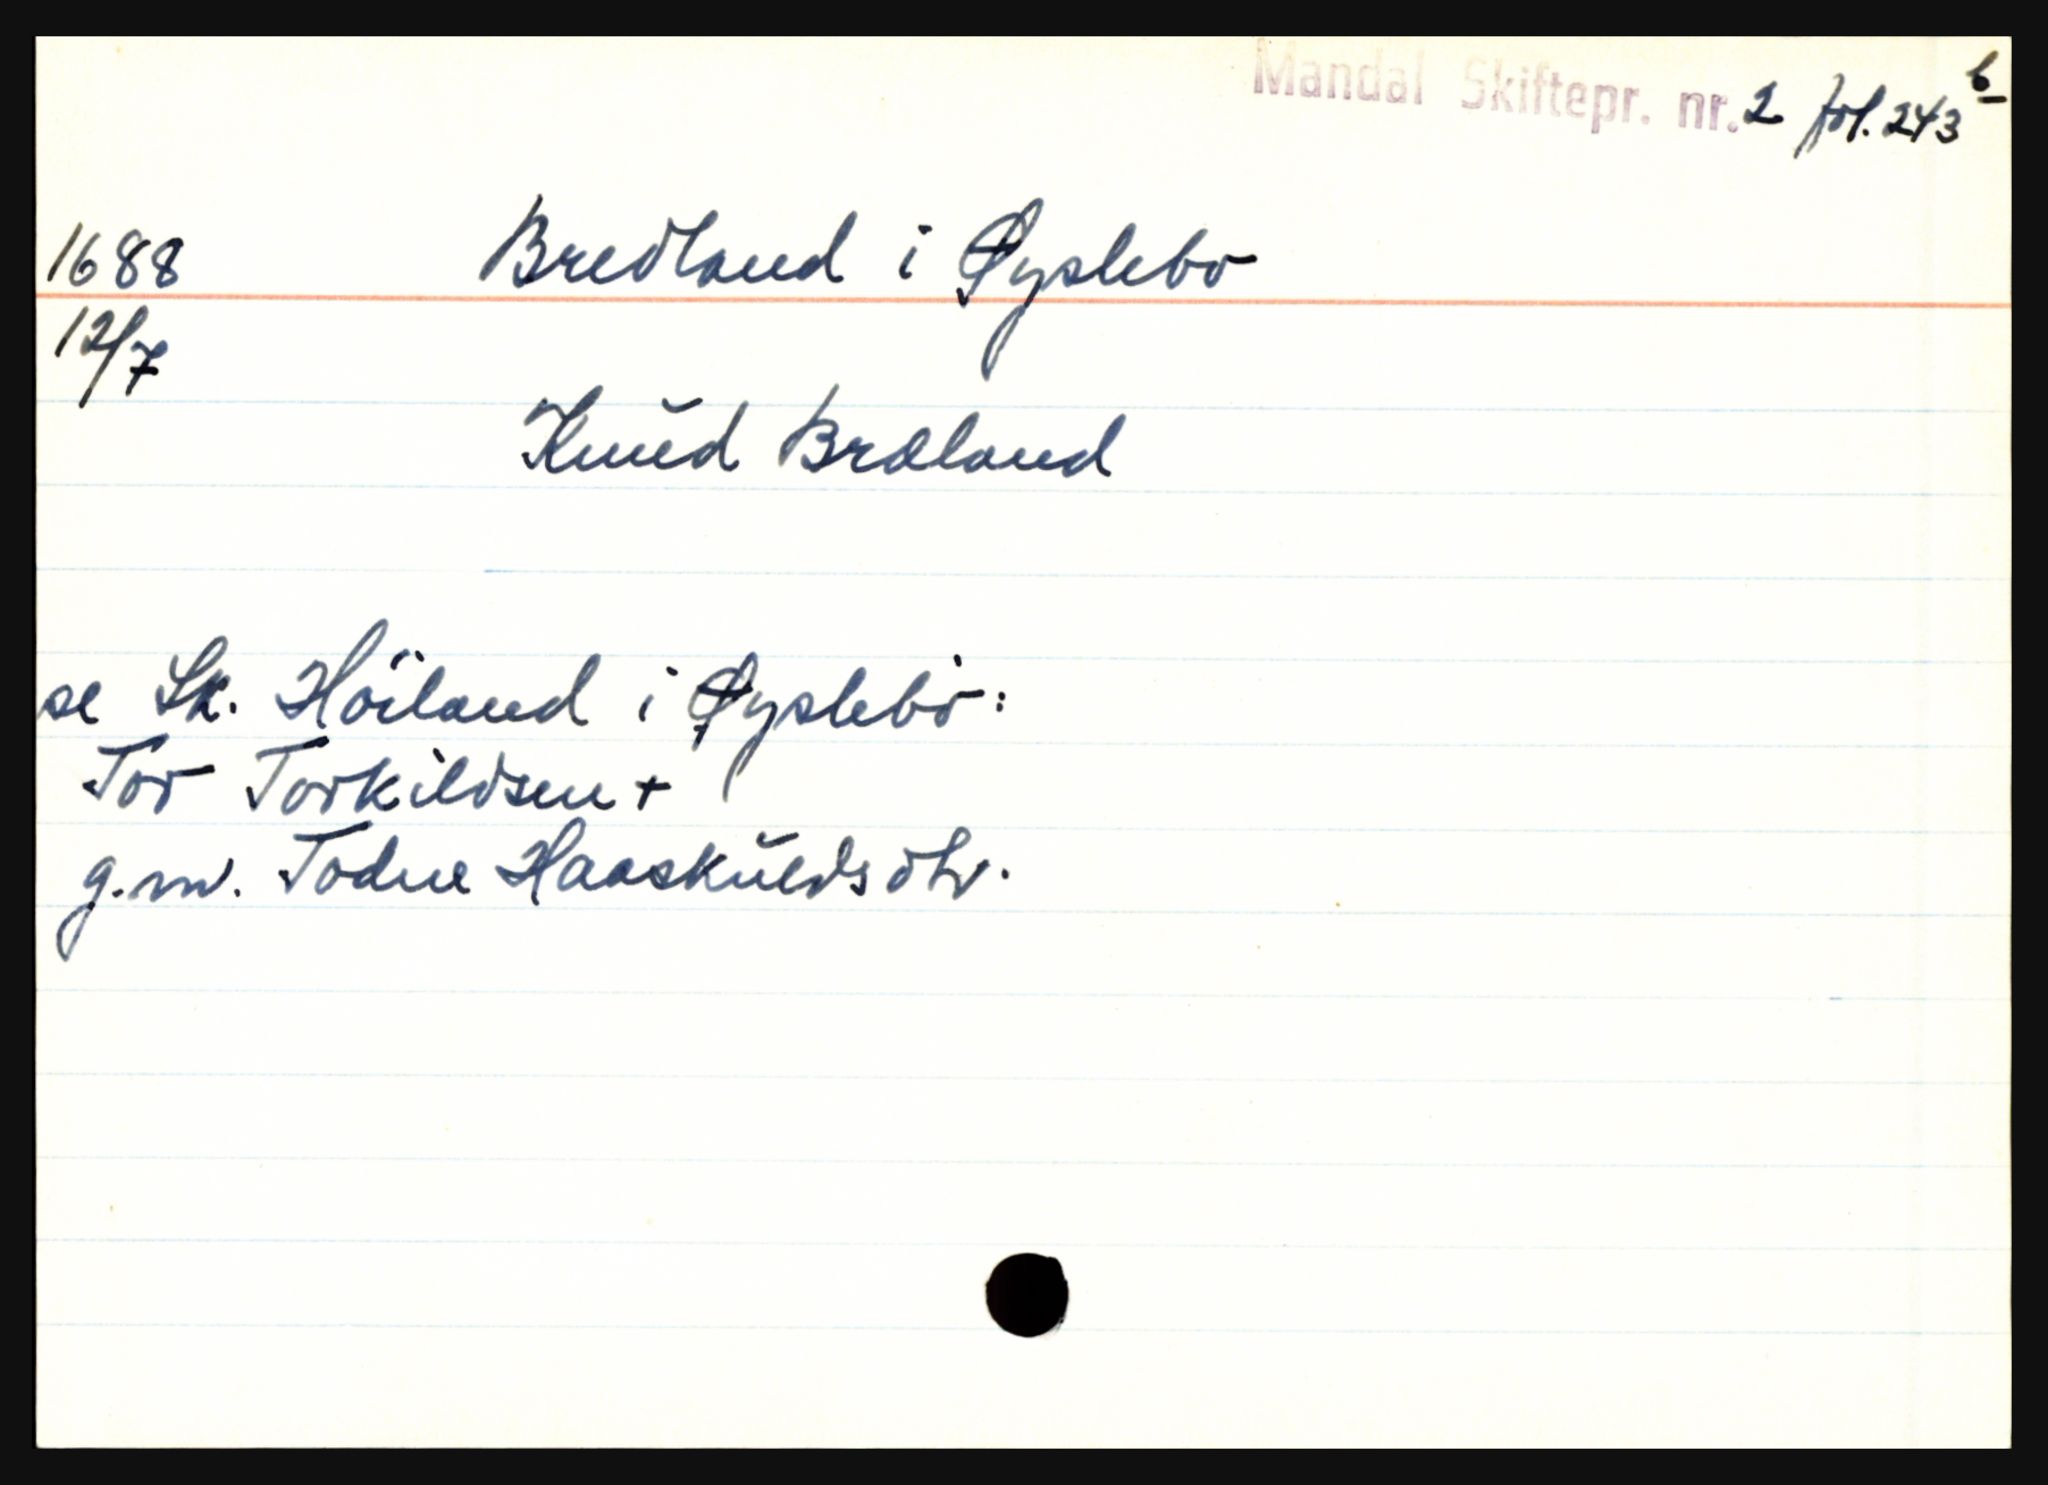 Mandal Skiftepr. nr. 2 fol. 243 b
1688 Bredland i Øyslebø
12/7
Knud Bræland
se Sk. Höiland i Øyslebö:
Tor Torkildsen +
g.m. Todne Haaskuldsdtr.